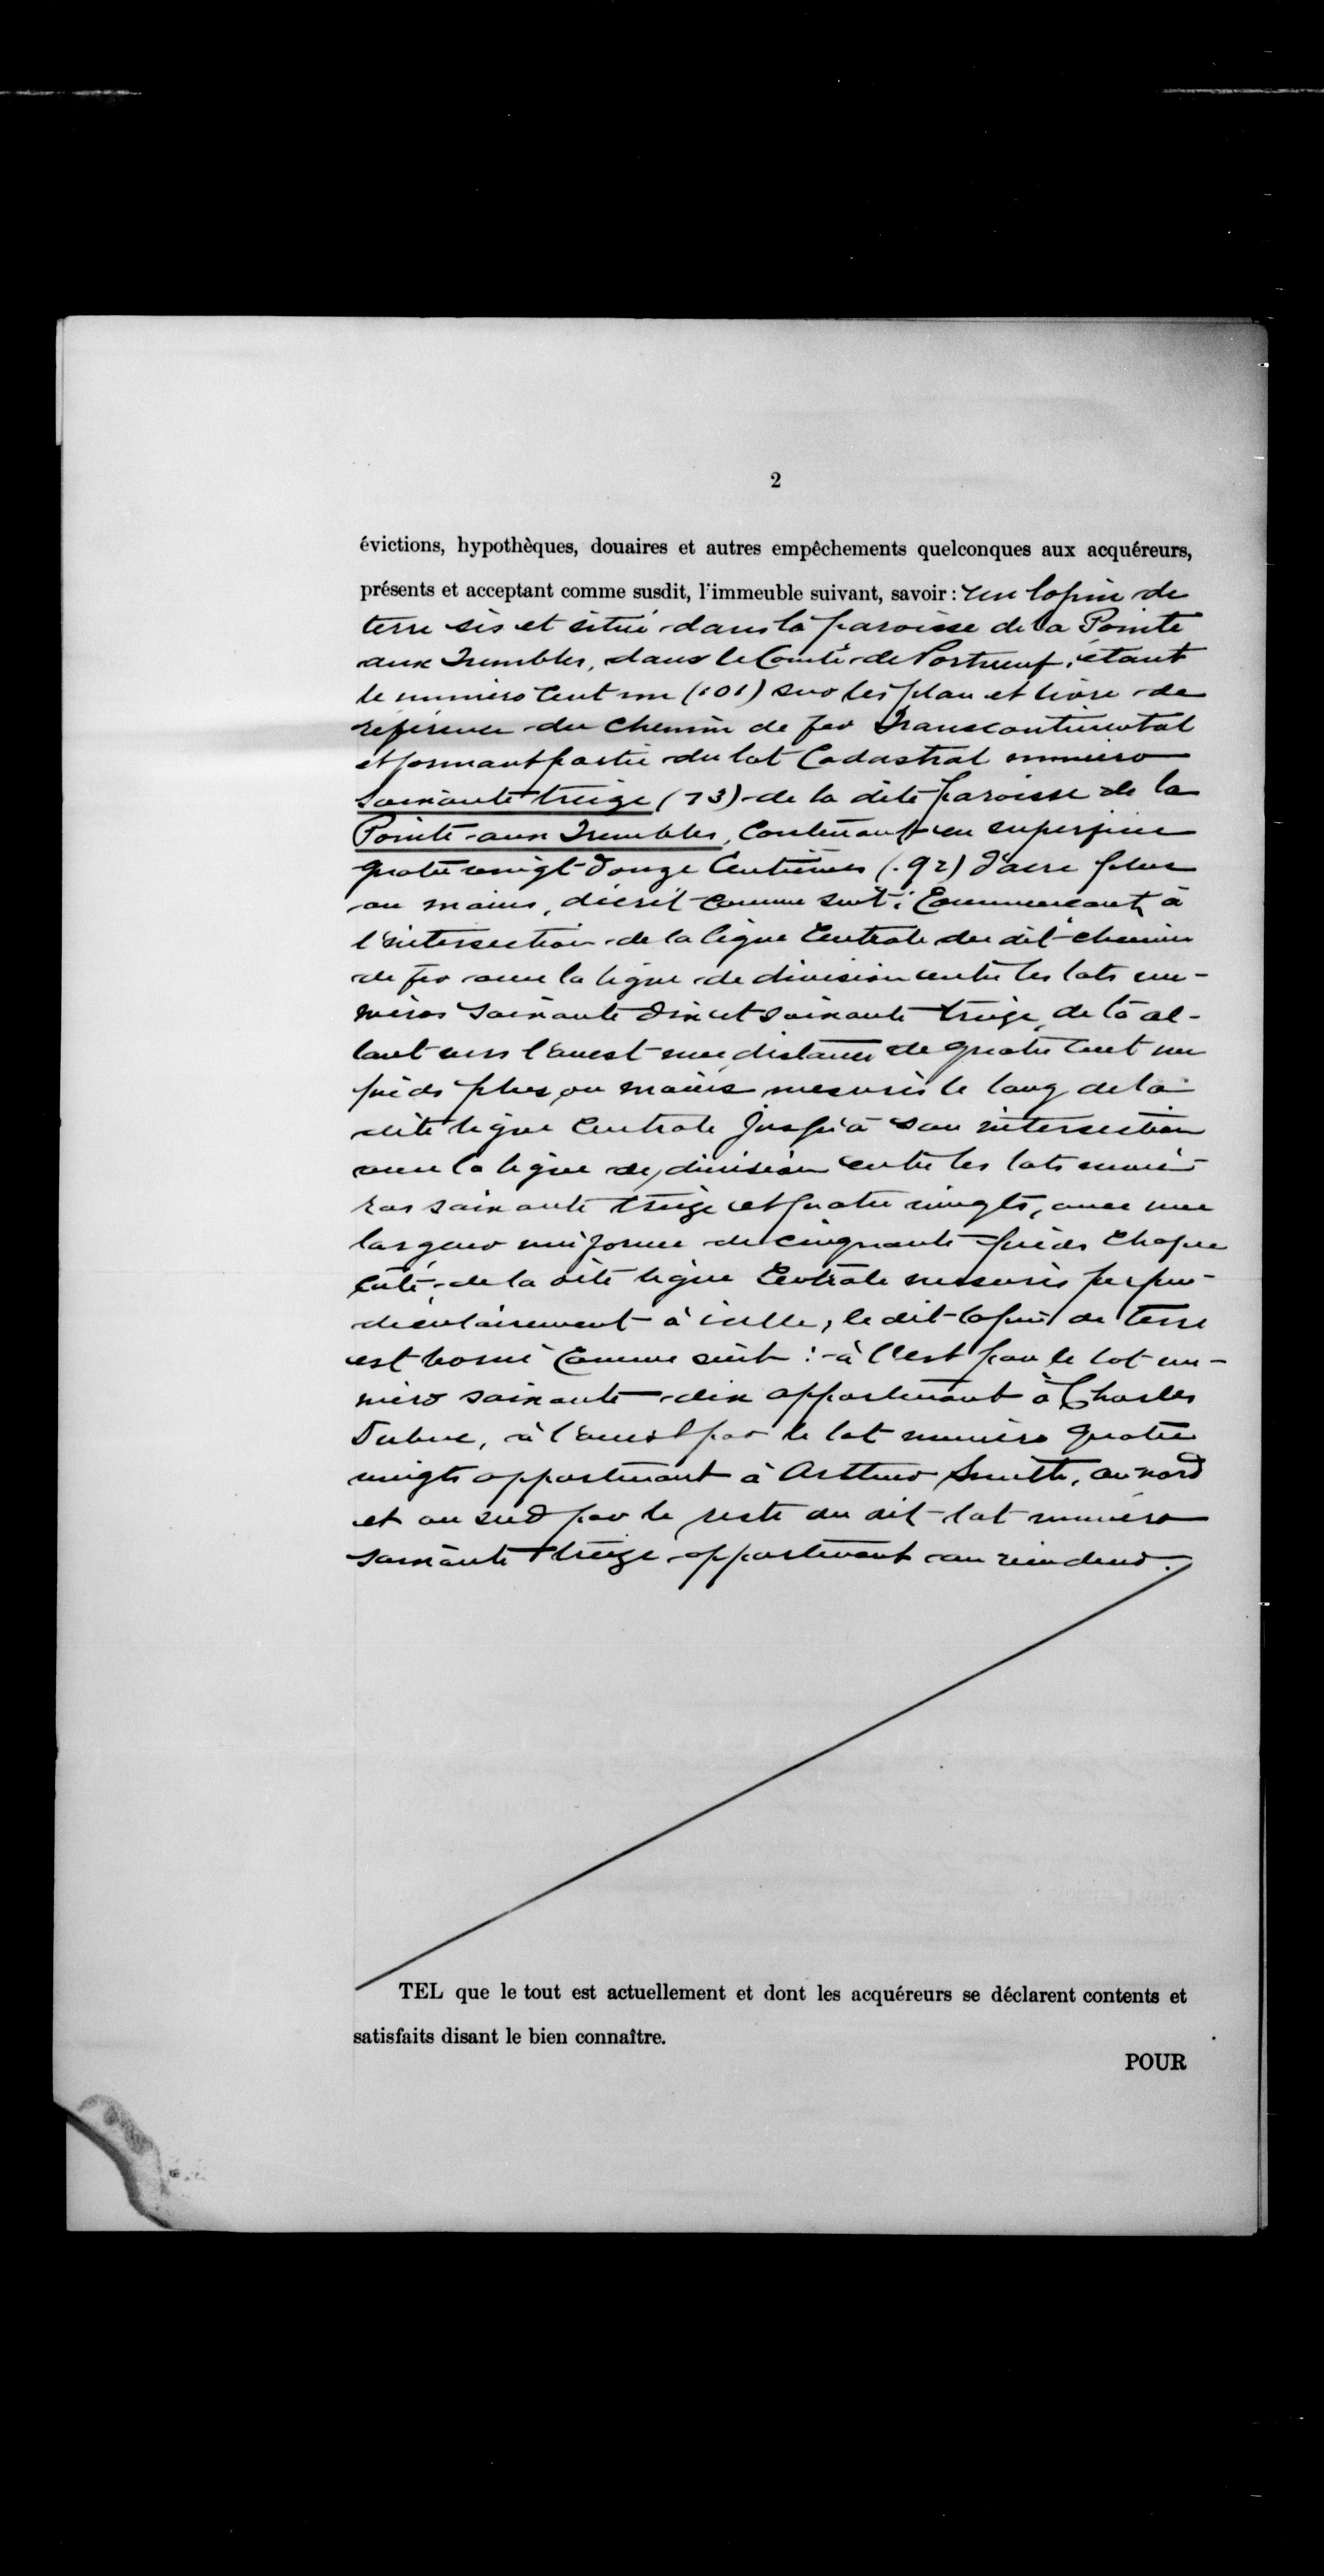 2
évictions, hypothèques, douaires et autres empêchements quelconques aux acquéreurs,
présents et acceptant comme susdit, l'immeuble suivant, savoir : un lopin de
terre sis et situé dans la paroisse de la Pointe
aux Trembles, dans le Comté de Portneuf, étant
le numéro Cent un (101) sur les plan et livre de
référence du Chemin de fer Transcontinental
et formant partie du lot Cadastral numéro
soixante treize (73) de la dite paroisse de la
Pointe-aux Trembles, Contenant en superficie
quatre vingt-douze Centièmes (.92) d'acre plus
ou moins, décrit comme suit : Commencant à
l'intersection de la ligne Centrale du dit chemin
de fer avec la ligne de division entre les lots nu-
méros soixante dix et soixante treize, de là al-
lant vers l'ouest une distance de quatre cent un
pieds plus ou moins mesurés le long de la
dite ligne Centrale jusqu'à son intersection
avec la ligne de division entre les lots numé-
ros soixante treize et quatre vingts, avec une
largeur uniforme de cinquante pieds chaque
côté de la dite ligne Centrale mesurés perpen-
diculairement à icelle, le dit lopin de terre
est borné Comme suit :- à l'est par le lot nu-
méro soixante-dix appartenant à Charles
Dubuc, à l'ouest par le lot numéro quatre
vingts appartenant à Arthur Smith, au nord
et au sud par le reste du dit lot numéro
soixante treize appartenant au vendeur.
TEL que le tout est actuellement et dont les acquéreurs se déclarent contents et
satisfaits disant le bien connaître.
POUR